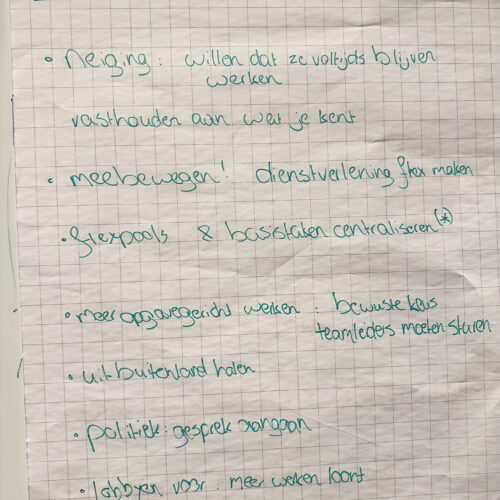 • Neiging: willen dat ze voltijds blijven
werken
vasthouden aan wat je kent
• meebewegen! dienstverlening flex maken
• flexpools & basistaken centraliseren (*)
• meer opgavegericht werken: bewuste keus
teamleiders moeten sturen
• uit buitenland halen
• politiek: gesprek aangaan
• lobbyen voor: meer werken loont